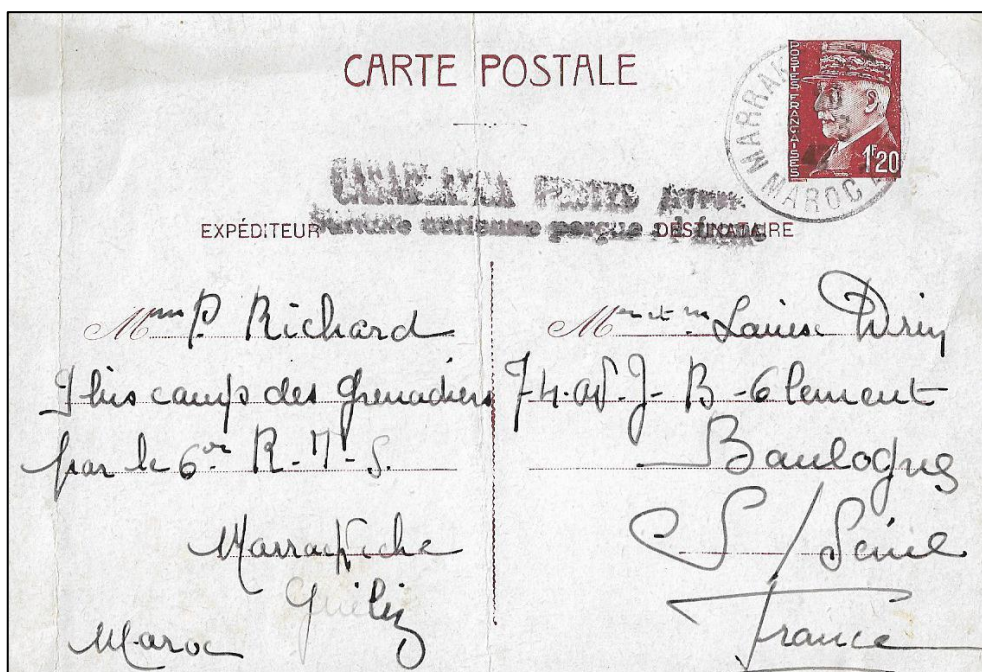 CARTE POSTALE
POSTES FRANÇAISES
1F20
MARRAK
MAROC
CASABLANCA POSTES AVION
Surtaxe aérienne perçue
EXPÉDITEUR
DESTINATAIRE
Mme P. Richard
bis camp des Grenadiers
par le 6e R-T-S.
Marrakiche
Guéliz
Maroc
M Louise
74. av. J-B-Clement
Boulogne
S/Seine
France